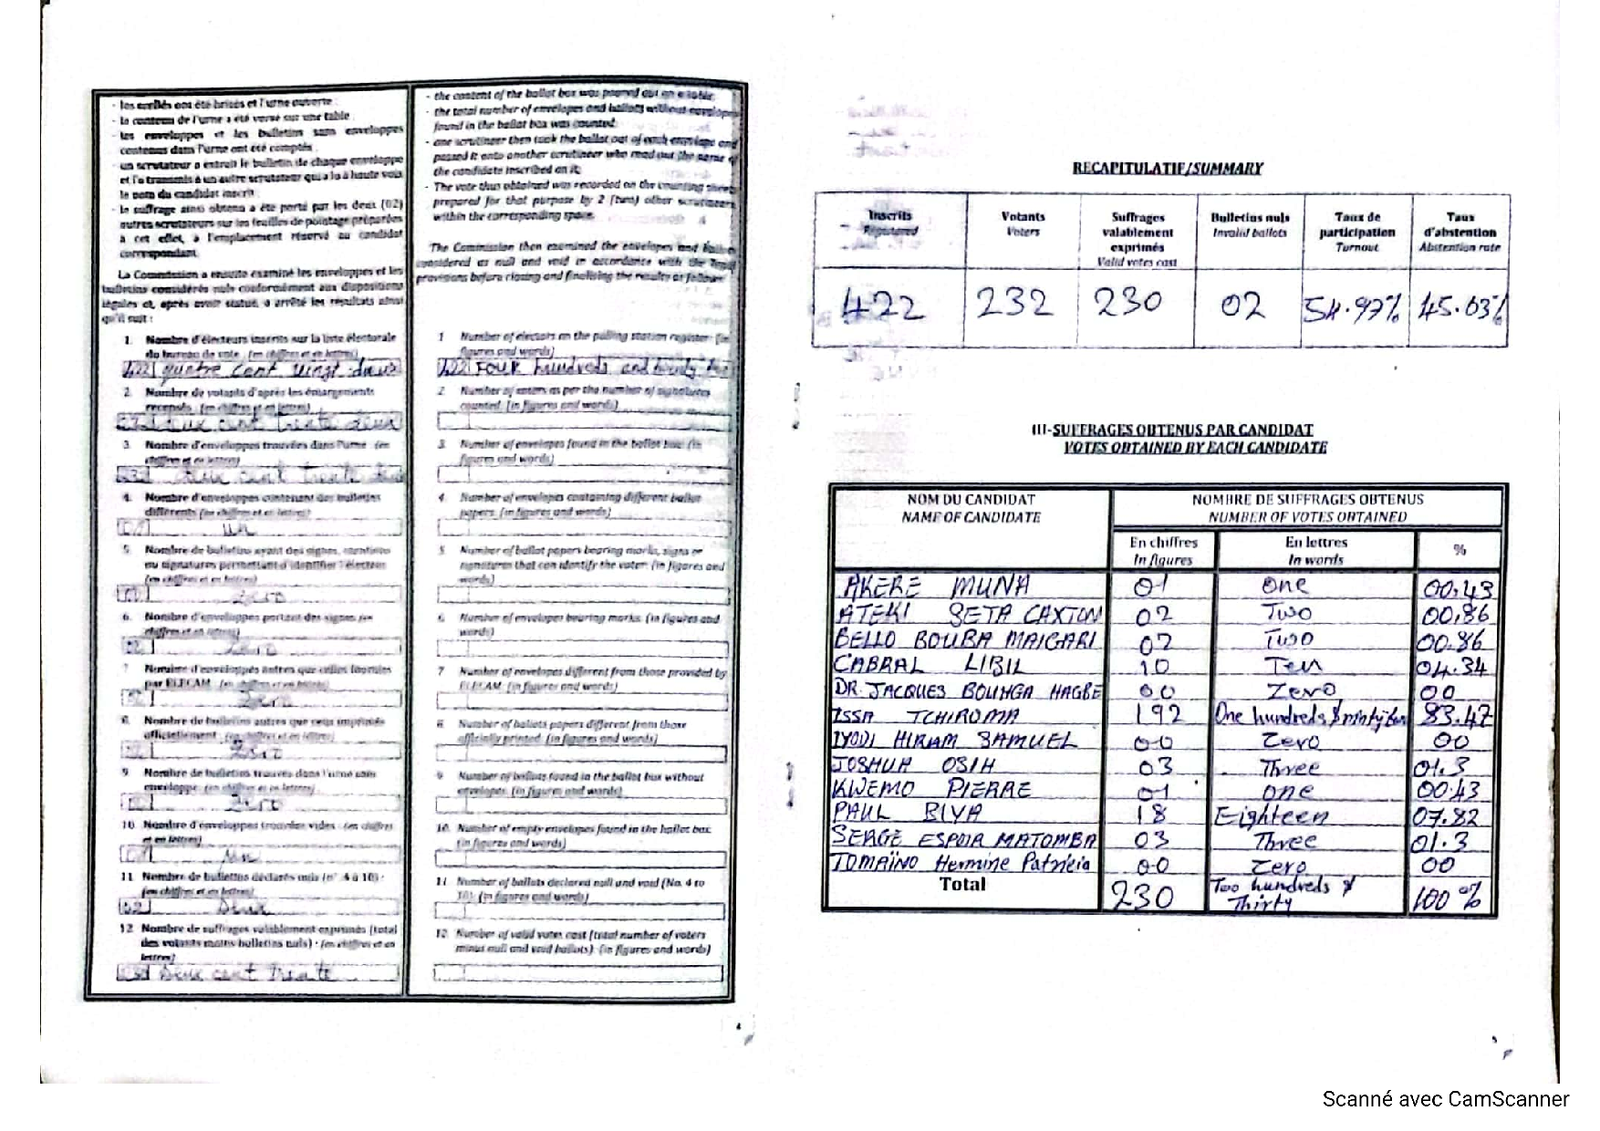 - les scellés ont été brisés et l'urne ouverte ;
- le contenu de l'urne a été versé sur une table ;
- les enveloppes et les bulletins sans enveloppes
contenus dans l'urne ont été comptés ;
- un scrutateur a extrait le bulletin de chaque enveloppe
et l'a transmis à un autre scrutateur qui a lu à haute voix
le nom du candidat inscrit
- le suffrage ainsi obtenu a été porté par les deux (02)
autres scrutateurs sur les feuilles de pointage préparées
à cet effet, à l'emplacement réservé au candidat
correspondant.
La Commission a ensuite examiné les enveloppes et les
bulletins considérés nuls conformément aux dispositions
légales et, après avoir statué, a arrêté les résultats ainsi
qu'il suit :
1. Nombre d'électeurs inscrits sur la liste électorale
du bureau de vote (en chiffres et en lettres)
422 quatre cent vingt deux
2. Nombre de votants d'après les émargements
recensés (en chiffres et en lettres)
deux cent trente deux
3. Nombre d'enveloppes trouvées dans l'urne (en
chiffres et en lettres)
deux cent trente deux
4. Nombre d'enveloppes contenant des bulletins
différents (en chiffres et en lettres)
01 un
5. Nombre de bulletins ayant des signes, mentions
ou signatures permettant d'identifier l'électeur
(en chiffres et en lettres)
zero
6. Nombre d'enveloppes portant des signes (en
chiffres et en lettres)
zero
7. Nombre d'enveloppes autres que celles fournies
par ELECAM (en chiffres et en lettres)
zero
8. Nombre de bulletins autres que ceux imprimés
officiellement (en chiffres et en lettres)
zero
9. Nombre de bulletins trouvés dans l'urne sans
enveloppe (en chiffres et en lettres)
zero
10. Nombre d'enveloppes trouvées vides (en chiffres
et en lettres)
01 un
11. Nombre de bulletins déclarés nuls (n° 4 à 10) :
(en chiffres et en lettres)
02 Deux
12. Nombre de suffrages valablement exprimés (total
des votants moins bulletins nuls) : (en chiffres et en
lettres)
230 Deux cent trente
- the content of the ballot box was poured out on a table;
- the total number of envelopes and ballots without envelopes
found in the ballot box was counted;
- one scrutineer then took the ballot out of each envelope and
passed it onto another scrutineer who read out the name of
the candidate inscribed on it;
- The vote thus obtained was recorded on the counting sheets
prepared for that purpose by 2 (two) other scrutineers
within the corresponding space.
The Commission then examined the envelopes and ballots
considered as null and void in accordance with the legal
provisions before closing and finalising the results as follows:
1 Number of electors on the polling station register: (in
figures and words)
422 FOUR hundreds and twenty two
2. Number of voters as per the number of signatures
counted. (in figures and words)
3. Number of envelopes found in the ballot box. (in
figures and words)
4 Number of envelopes containing different ballot
papers. (in figures and words)
5 Number of ballot papers bearing marks, signs or
signatures that can identify the voter: (in figures and
words)
6 Number of envelopes bearing marks. (in figures and
words)
7 Number of envelopes different from those provided by
ELECAM. (in figures and words)
8 Number of ballots papers different from those
officially printed. (in figures and words)
9 Number of ballots found in the ballot box without
envelopes. (in figures and words)
10. Number of empty envelopes found in the ballot box.
(in figures and words)
11 Number of ballots declared null and void (No. 4 to
10): (in figures and words)
12 Number of valid votes cast (total number of voters
minus null and void ballots): (in figures and words)
4
RECAPITULATIF/SUMMARY
Inscrits Votants Suffrages Bulletins nuls Taux de Taux
Registered Voters valablement Invalid ballots participation d'abstention
exprimés Turnout Abstention rate
Valid votes cast
422 232 230 02 54.97% 45.03%
III-SUFFRAGES OBTENUS PAR CANDIDAT
VOTES OBTAINED BY EACH CANDIDATE
NOM DU CANDIDAT NOMBRE DE SUFFRAGES OBTENUS
NAME OF CANDIDATE NUMBER OF VOTES OBTAINED
En chiffres En lettres %
In figures In words
AKERE MUNA 01 One 00.43
ATEKI SETA CAXTON 02 Two 00.86
BELLO BOUBA MAIGARI 02 Two 00.86
CABRAL LIBII 10 Ten 04.34
DR. JACQUES BOUHGA HAGBE 00 Zero 00
ISSA TCHIROMA 192 One hundreds & ninty two 83.47
IYODI HIRAM SAMUEL 00 Zero 00
JOSHUA OSIH 03 Three 01.3
KWEMO PIERRE 01 one 00.43
PAUL BIYA 18 Eighteen 07.82
SERGE ESPOIR MATOMBA 03 Three 01.3
TOMAÏNO Hermine Patricia 00 Zero 00
Total 230 Two hundreds & Thirty 100%
5
Scanné avec CamScanner